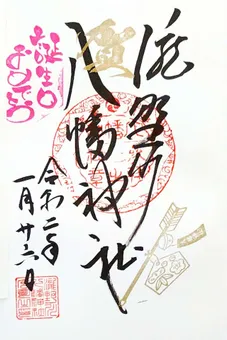 瀧野川
八幡神社
令和二年
一月廿六日
誕生日
おめでとう